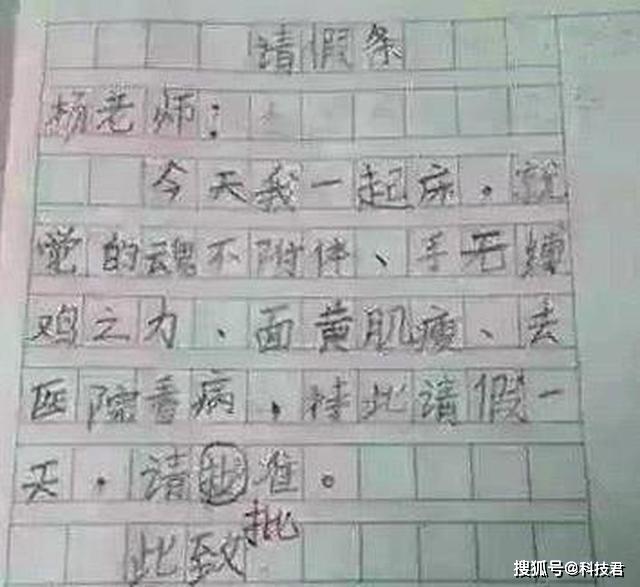 请假条
杨老师：
今天我一起床，就
觉的魂不附体、手无缚
鸡之力、面黄肌瘦、去
医院看病，特此请假一
天，请批准。
批
此致
搜狐号@科技君